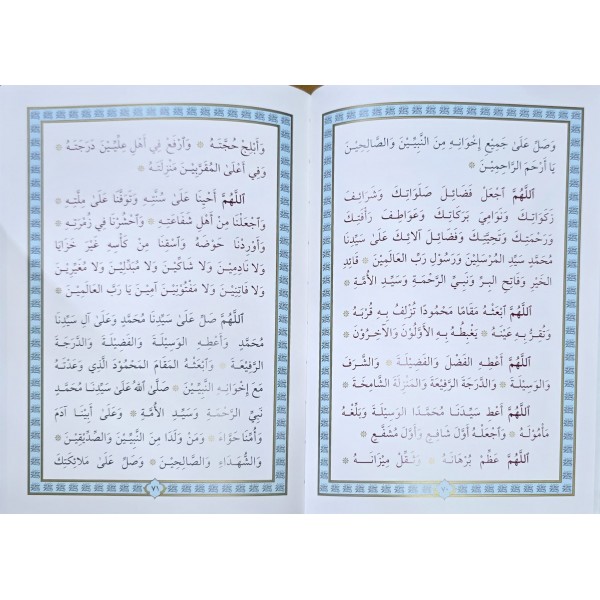 وَصَلِّ عَلَىٰ جَمِيْعِ إِخْوَانِهِ مِنَ النَّبِيِّيْنَ وَالصَّالِحِيْنَ
يَا أَرْحَمَ الرَّاحِمِيْنَ ❊
اَللّٰهُمَّ اجْعَلْ فَضَائِلَ صَلَوَاتِكَ وَشَرَائِفَ
زَكَوَاتِكَ وَنَوَامِيَ بَرَكَاتِكَ وَعَوَاطِفَ رَأْفَتِكَ
وَرَحْمَتِكَ وَتَحِيَّتِكَ وَفَضَائِلَ آلَائِكَ عَلَىٰ سَيِّدِنَا
مُحَمَّدٍ سَيِّدِ الْمُرْسَلِيْنَ وَرَسُوْلِ رَبِّ الْعَالَمِيْنَ ❊ قَائِدِ
الْخَيْرِ وَفَاتِحِ الْبِرِّ وَنَبِيِّ الرَّحْمَةِ وَسَيِّدِ الْأُمَّةِ ❊
اَللّٰهُمَّ ابْعَثْهُ مَقَامًا مَحْمُوْدًا تُزْلِفُ بِهِ قُرْبَهُ ❊
وَتُقِرُّ بِهِ عَيْنَهُ ❊ يَغْبِطُهُ بِهِ الْأَوَّلُوْنَ وَالْآخِرُوْنَ ❊
اَللّٰهُمَّ أَعْطِهِ الْفَضْلَ وَالْفَضِيْلَةَ ❊ وَالشَّرَفَ
وَالْوَسِيْلَةَ ❊ وَالدَّرَجَةَ الرَّفِيْعَةَ وَالْمَنْزِلَةَ الشَّامِخَةَ ❊
اَللّٰهُمَّ أَعْطِ سَيِّدَنَا مُحَمَّدًا الْوَسِيْلَةَ وَبَلِّغْهُ
مَأْمُوْلَهُ ❊ وَاجْعَلْهُ أَوَّلَ شَافِعٍ وَأَوَّلَ مُشَفَّعٍ ❊
اَللّٰهُمَّ عَظِّمْ بُرْهَانَهُ ❊ وَثَقِّلْ مِيْزَانَهُ ❊
٧٠
وَأَبْلِجْ حُجَّتَهُ ❊ وَارْفَعْ فِي أَهْلِ عِلِّيِّيْنَ دَرَجَتَهُ ❊
وَفِي أَعْلَىٰ الْمُقَرَّبِيْنَ مَنْزِلَتَهُ ❊
اَللّٰهُمَّ أَحْيِنَا عَلَىٰ سُنَّتِهِ وَتَوَفَّنَا عَلَىٰ مِلَّتِهِ ❊
وَاجْعَلْنَا مِنْ أَهْلِ شَفَاعَتِهِ ❊ وَاحْشُرْنَا فِي زُمْرَتِهِ ❊
وَأَوْرِدْنَا حَوْضَهُ وَاسْقِنَا مِنْ كَأْسِهِ غَيْرَ خَزَايَا
وَلَا نَادِمِيْنَ وَلَا شَاكِّيْنَ وَلَا مُبَدِّلِيْنَ وَلَا مُغَيِّرِيْنَ
وَلَا فَاتِنِيْنَ وَلَا مَفْتُوْنِيْنَ آمِيْنَ يَا رَبَّ الْعَالَمِيْنَ ❊
اَللّٰهُمَّ صَلِّ عَلَىٰ سَيِّدِنَا مُحَمَّدٍ وَعَلَىٰ آلِ سَيِّدِنَا
مُحَمَّدٍ وَأَعْطِهِ الْوَسِيْلَةَ وَالْفَضِيْلَةَ وَالدَّرَجَةَ
الرَّفِيْعَةَ ❊ وَابْعَثْهُ الْمَقَامَ الْمَحْمُوْدَ الَّذِي وَعَدْتَهُ
مَعَ إِخْوَانِهِ النَّبِيِّيْنَ ❊ صَلَّى اللهُ عَلَىٰ سَيِّدِنَا مُحَمَّدٍ
نَبِيِّ الرَّحْمَةِ وَسَيِّدِ الْأُمَّةِ ❊ وَعَلَىٰ أَبِيْنَا آدَمَ
وَأُمِّنَا حَوَّاءَ ❊ وَمَنْ وَلَدَا مِنَ النَّبِيِّيْنَ وَالصِّدِّيْقِيْنَ ❊
وَالشُّهَدَاءِ وَالصَّالِحِيْنَ ❊ وَصَلِّ عَلَىٰ مَلَائِكَتِكَ
٧١